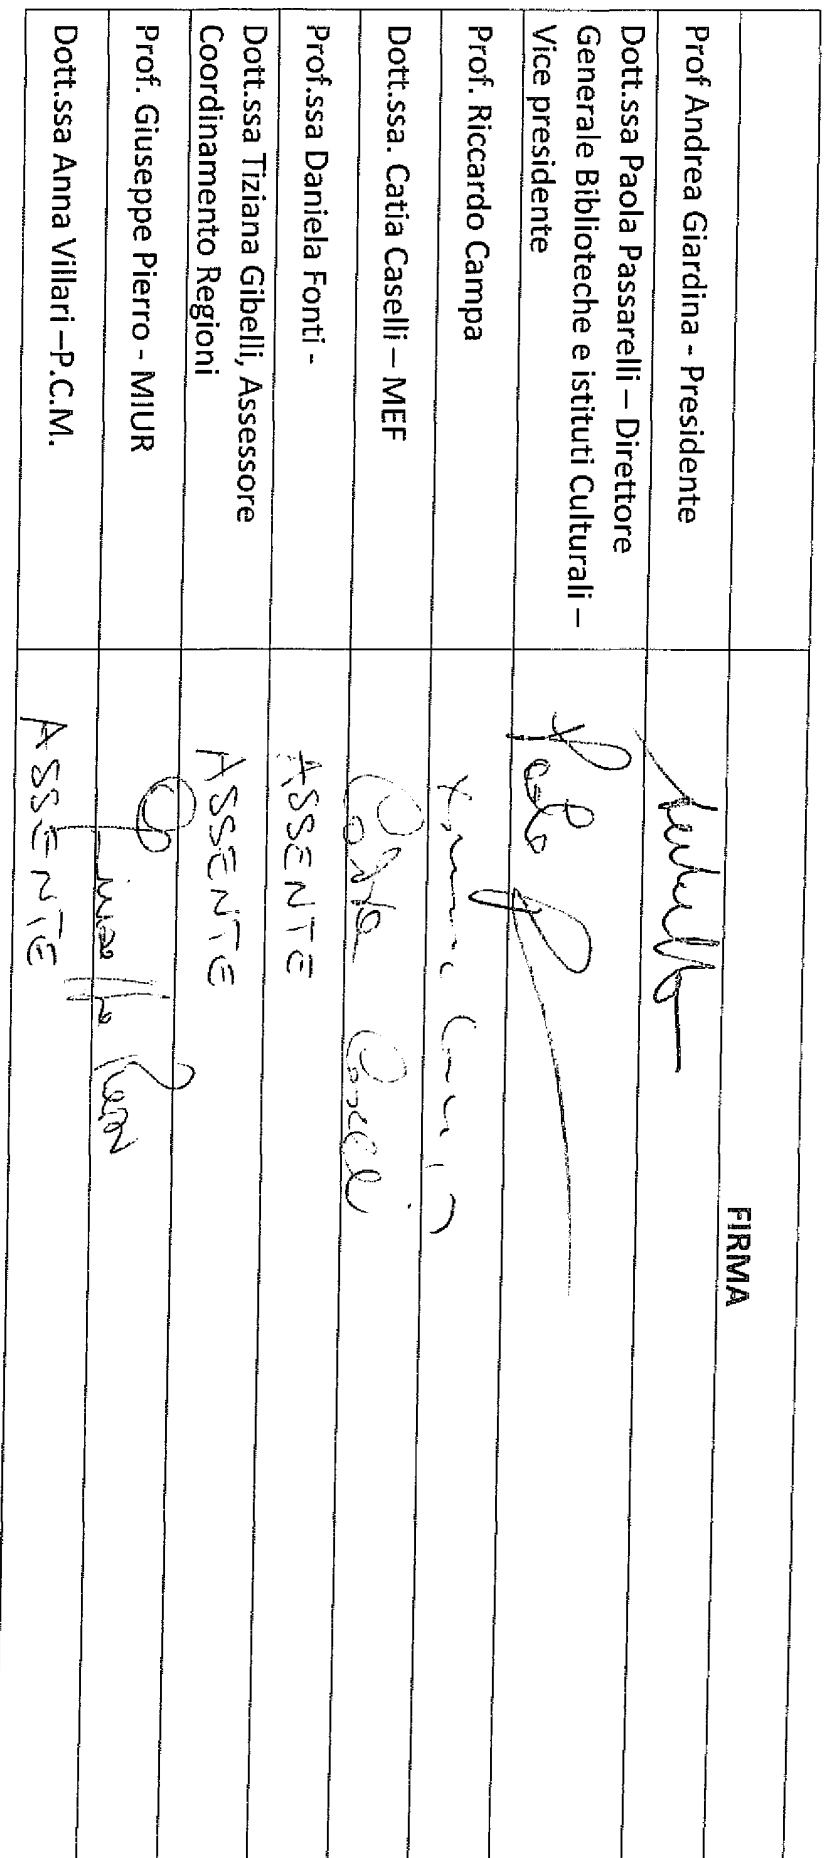 FIRMA
Prof Andrea Giardina - Presidente
Dott.ssa Paola Passarelli – Direttore
Generale Biblioteche e istituti Culturali –
Vice presidente
Prof. Riccardo Campa
Dott.ssa. Catia Caselli – MEF
Catia Caselli
Prof.ssa Daniela Fonti -
ASSENTE
Dott.ssa Tiziana Gibelli, Assessore
Coordinamento Regioni
ASSENTE
Prof. Giuseppe Pierro - MIUR
Dott.ssa Anna Villari –P.C.M.
ASSENTE